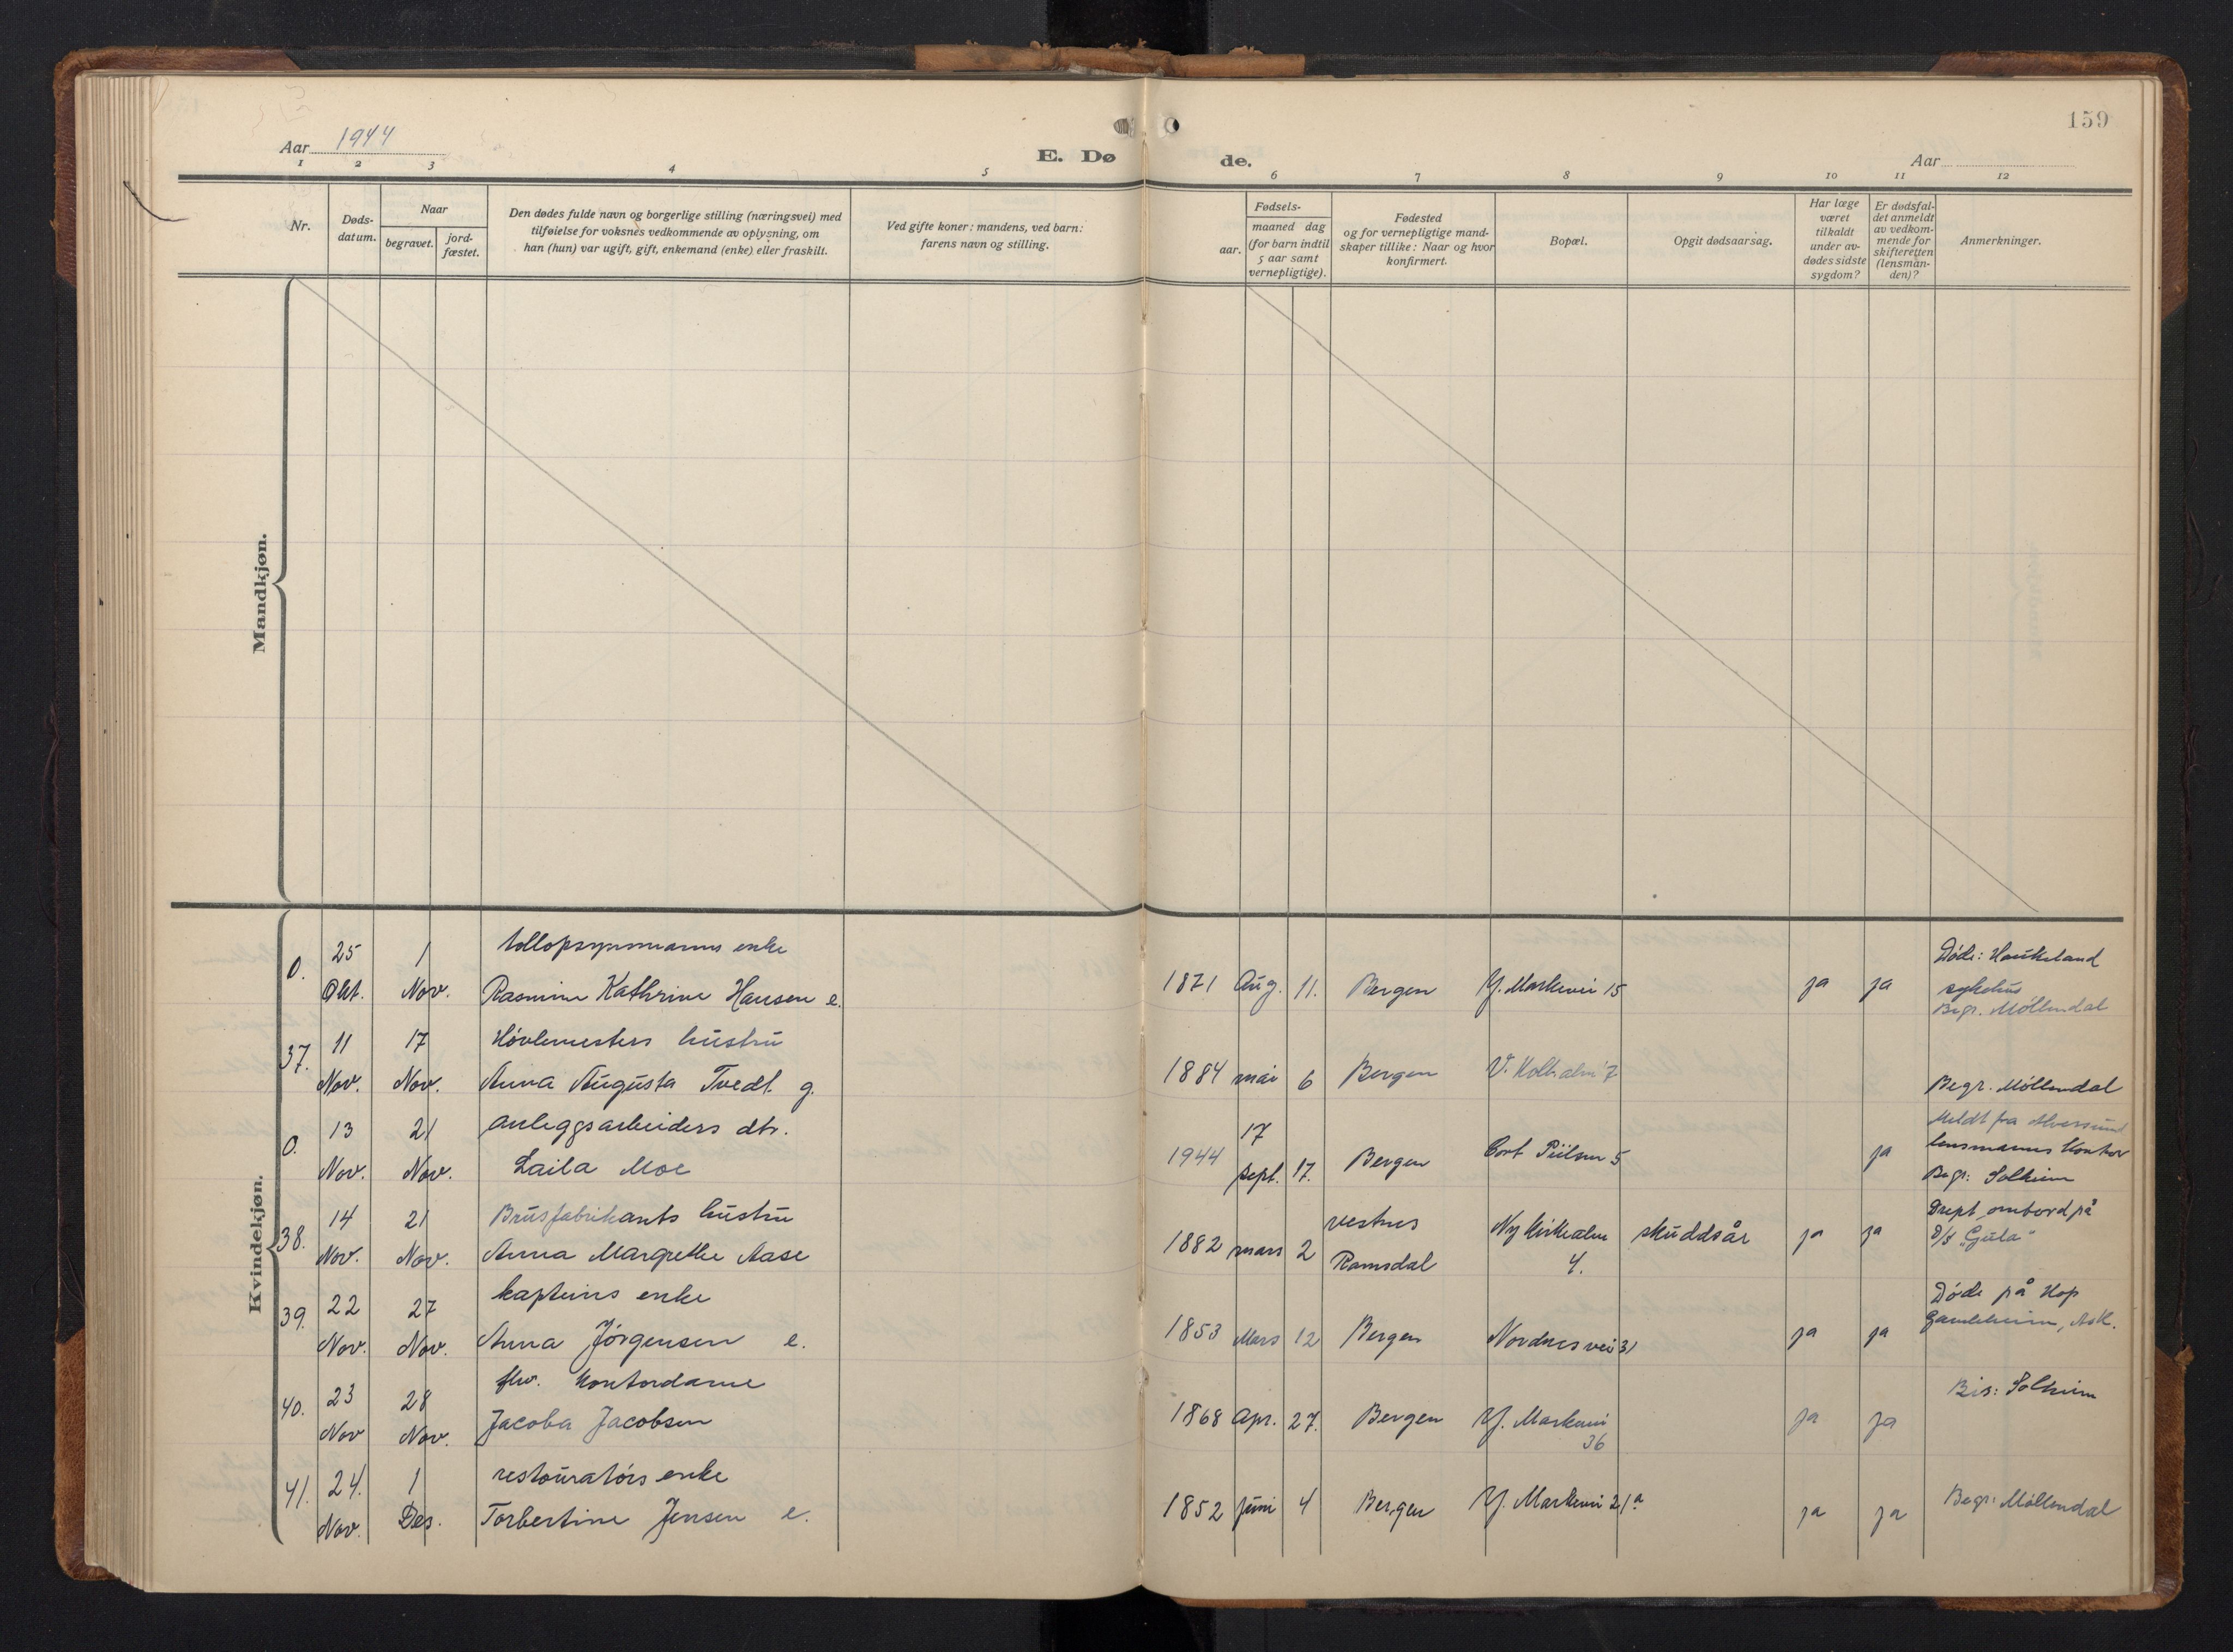 159
Aar 1944
E. Dø
de.
Aar
1 2 3 4 5 6 7 8 9 10 11 12
Nr.
Døds-
datum.
Naar
begravet.
jord-
fæstet.
Den dødes fulde navn og borgerlige stilling (næringsvei) med
tilføielse for voksnes vedkommende av oplysning, om
han (hun) var ugift, gift, enkemand (enke) eller fraskilt.
Ved gifte koner: mandens, ved barn:
farens navn og stilling.
Fødsels-
aar.
maaned dag
(for barn indtil
5 aar samt
vernepligtige).
Fødested
og for vernepligtige mand-
skaper tillike: Naar og hvor
konfirmert.
Bopæl.
Opgit dødsaarsag.
Har læge
været
tilkaldt
under av-
dødes sidste
sygdom?
Er dødsfal-
det anmeldt
av vedkom-
mende for
skifteretten
(lensman-
den)?
Anmerkninger.
Mandkjøn.
Kvindekjøn.
0. 25 1 tollopsynsmanns enke Døde: Haukeland
Okt. Nov. Rasmine Kathrine Hansen e. 1871 Aug. 11. Bergen Y. Markevei 15 ja ja sykehus
Begr. Möllendal
37. 11 17 Høvlemesters hustru
Nov. Nov. Anna Augusta Tvedt g. 1884 mai 6 Bergen V. Holbalm 7 Begr. Möllendal
0. 13 21 anleggsarbeiders dtr. 17 Meldt fra Alversund
Nov. Nov. Laila Moe 1944 sept. 17. Bergen Cort Piilsm 5 ja lensmanns Kontor
Begr: Solheim
38. 14 21 Brusfabrikants hustru vestnes Drept ombord på
Nov. Nov. Anna Margrethe Aase 1882 mars 2 Romsdal Nykirkealm 4. skuddsår ja ja D/S "Gula"
39. 22 27 kapteins enke Døde på Hop
Nov. Nov. Anna Jörgensen e. 1853 Mars 12 Bergen Nordnesvei 31 ja ja Gamleheim, Ask.
40. 23 28 fhv. Kontordame Bis: Solheim
Nov Nov. Jacoba Jacobsen 1868 Apr. 27. Bergen Y. Markevei 36 ja ja
41. 24. 1 restauratörs enke
Nov. Des. Torbertine Jensen e. 1852 juni 4 Bergen Y. Markevei 21a ja ja Begr: Möllendal